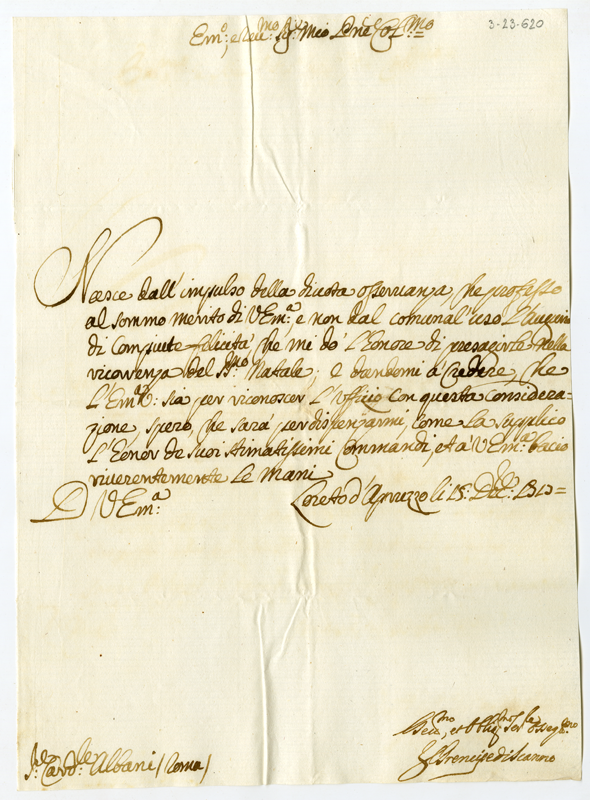 3-23-620
Em.º, e Reu.mo Sig.r Mio Pne Col.mo
Nasce dall'impulso della diuota osseruanza, che professo
al sommo merito di V Em.a e non dal comunal'uso L'augurio
di compiute felicità, che mi dò L'honore di presagirle nella
ricorrenza del S.mo Natale; e dandomi à credere, che
L'Em.V: sia per riconoscer L'Officio con questa considera-
zione spero, che sarà per dispenzarmi, come La supplico
L'honor de suoi stimatissimi Commandi, et à V Em.a bacio
riuerentemente Le Mani
D V Em.a Loreto d'Apruzzo li 15: Dec.
S.r Card.le Albani (Roma)
et Obblig.mo Ser.
Il Prencipe di Scanno